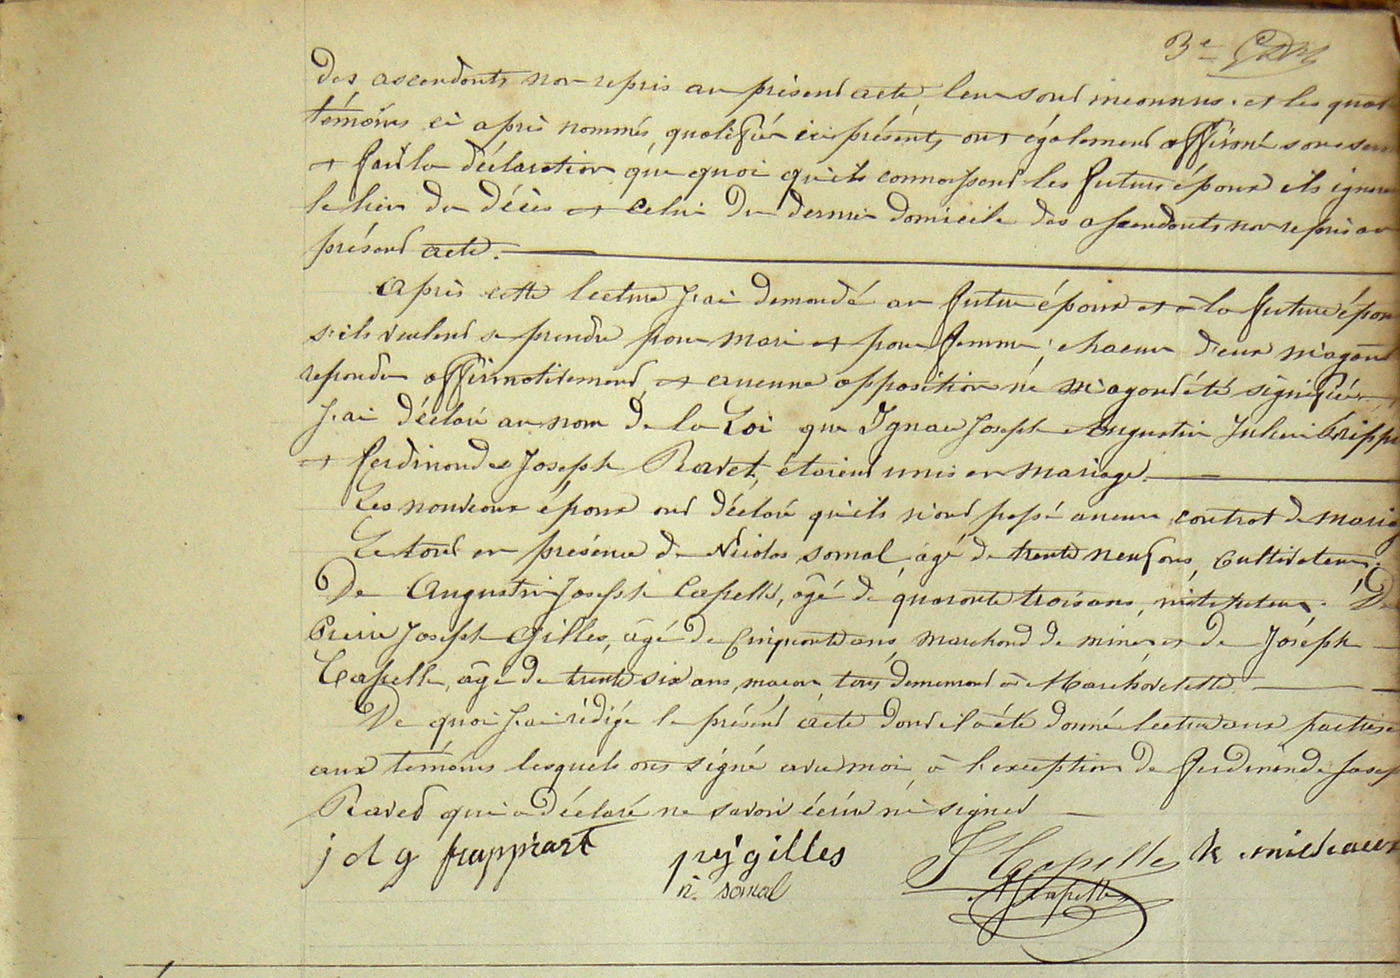 3e
des ascendants non repris au présent acte, leur sont inconnus. et les quat
témoins ci après nommés, qualifiés ici présents, ont également affirmé sous serm
et fait la déclaration que quoi qu'ils connaissent les futurs époux ils ignor
le lieu du décès et celui du dernier domicile des ascendants non repris au
présent acte.
Après cette lecture j'ai demandé au futur époux et à la future épou
s'ils veulent se prendre pour mari et pour femme, chacun d'eux m'ayant
répondu affirmativement, et aucune opposition ne m'ayant été signifiée,
j'ai déclaré au nom de la Loi que Ignace Joseph Augustin Julien
et Ferdinande Joseph Ravet, étaient unis en mariage.
Les nouveaux époux ont déclaré qu'ils n'ont passé aucun contrat de mariag
Le tout en présence de Nicolas somal, âgé de trente neuf ans, cultivateur.
De Augustin Joseph Capelle, âgé de quarante trois ans, instituteur. De
Pierre Joseph Gilles, âgé de Cinquante ans, marchand de mines et de Joseph
Capelle, âgé de trente six ans, maçon, tous demeurant à Marchovelette.
De quoi j'ai rédigé le présent acte dont il a été donné lecture aux parties e
aux témoins lesquels ont signé avec moi, à l'exception de Ferdinande Josep
Ravet qui a déclaré ne savoir écrire ni signer
j d g frappart pij gilles J Capelle
n. somal A J Capelle